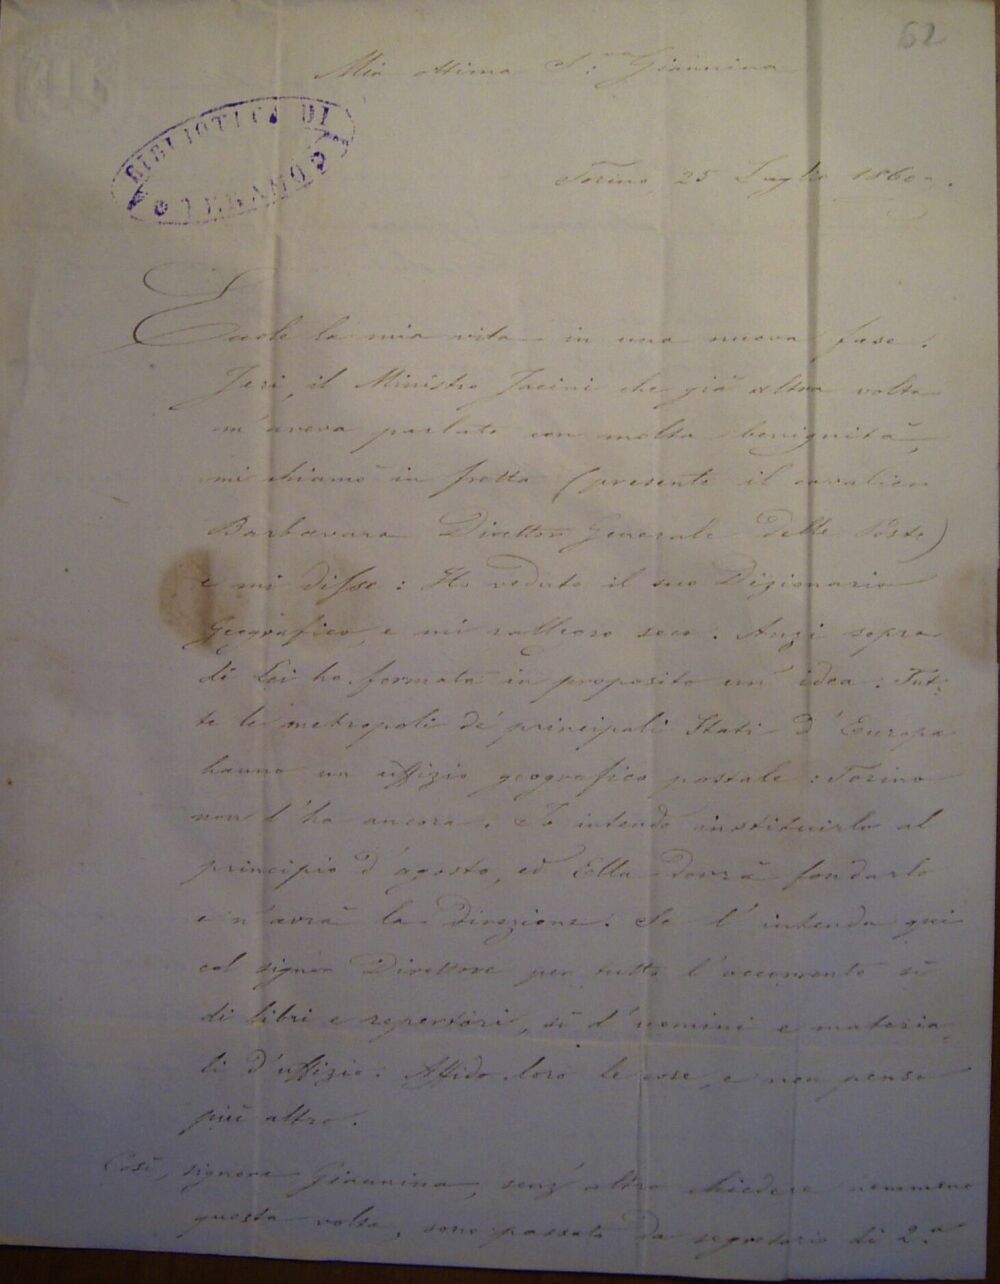 62
Mia ottima S.ra Giannina
BIBLIOTECA DI
TERAMO
Torino, 25 Luglio 1860.
Eccole la mia vita in una nuova fase.
Jeri, il Ministro Jacini che già altra volta
m'aveva parlato con molta benignità,
mi chiamò in fretta (presente il cavalier
Barbavara Direttor Generale delle Poste)
e mi disse: Ho veduto il suo Dizionario
Geografico, e mi rallegro seco. Anzi sopra
di Lei ho formata in proposito un'idea. Tut-
te le metropoli de' principali Stati d'Europa
hanno un uffizio geografico postale: Torino
non l'ha ancora. Io intendo instituirlo al
principio d'agosto, ed Ella dovrà fondarlo
e n'avrà la direzione. Se l'intenda qui
col signor Direttore per tutto l'occorrente sì
di libri e repertori, sì d'uomini e materia-
li d'uffizio: Affido loro le cose, e non penso
più altro.
Così, signora Giannina, senz'altro chiedere nemmeno
questa volta, sono passato da segretario di 2.a